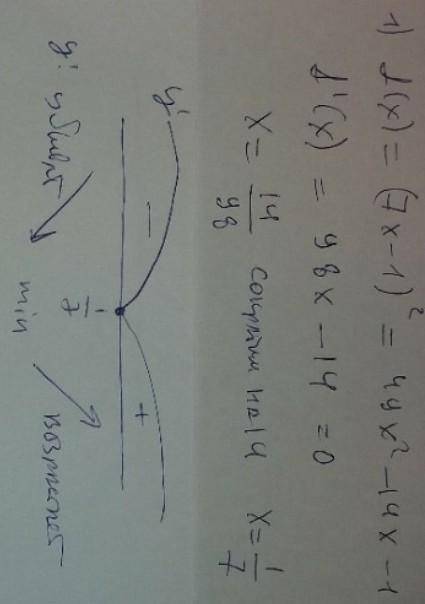 1) f(x) = (7x-1)² = 49x² - 14x - 1
f'(x) = 98x - 14 = 0
x = 14/98 сократим на 14 x = 1/7
y'
- +
1/7
y: убывает min возрастает